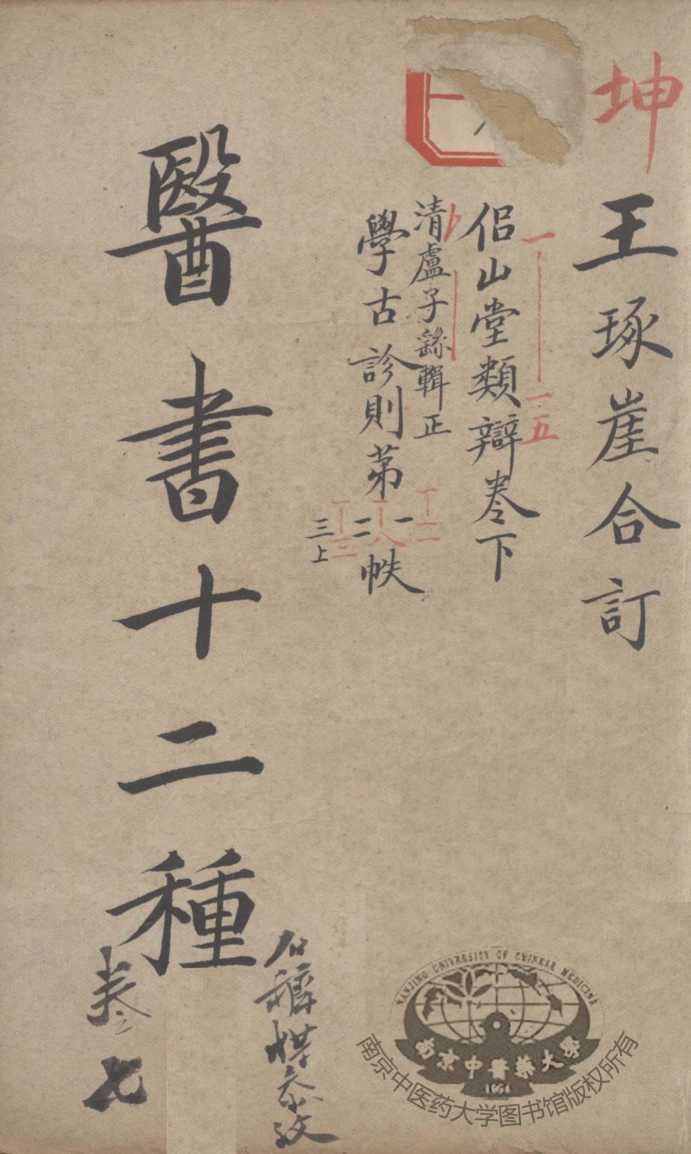 坤
王琢崖合訂
侣山堂類辯卷下
一 一五
清盧子繇輯正
學古診則第一帙
二
三上
醫書十二種
卷七
NANJING UNIVERSITY OF CHINESE MEDICINE
南京中醫藥大學
1954
南京中医药大学图书馆版权所有